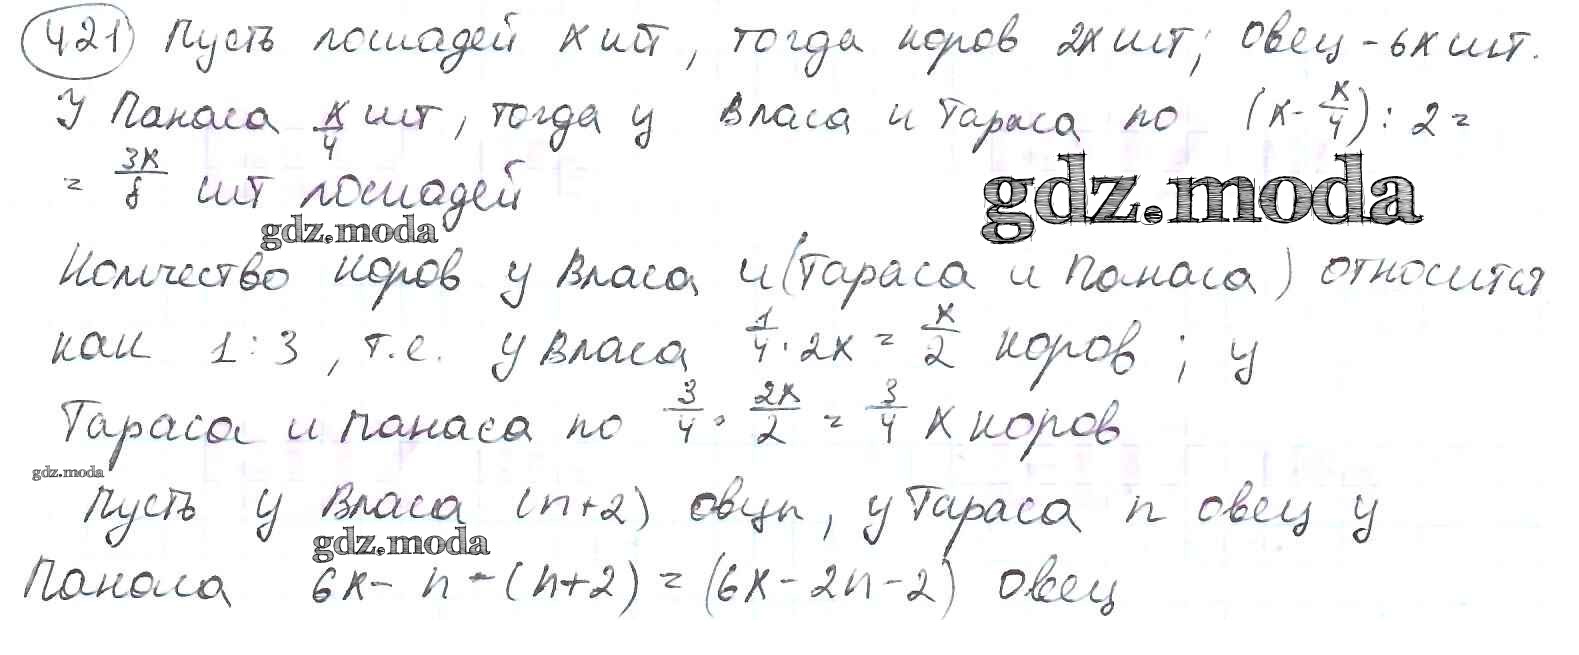 421 Пусть лошадей x шт, тогда коров 2x шт; овец - 6x шт.
У Панаса x/4 шт, тогда у Власа и Тараса по (x - x/4) : 2 =
= 3x/8 шт лошадей
gdz.moda
gdz.moda
Количество коров у Власа и (Тараса и Панаса) относится
как 1 : 3, т.е. у Власа 1/4 · 2x = x/2 коров; у
Тараса и Панаса по 3/4 · 2x/2 = 3/4 x коров
gdz.moda
Пусть у Власа (n+2) овцы, у Тараса n овец у
gdz.moda
Панаса 6x - n - (n+2) = (6x - 2n - 2) овец